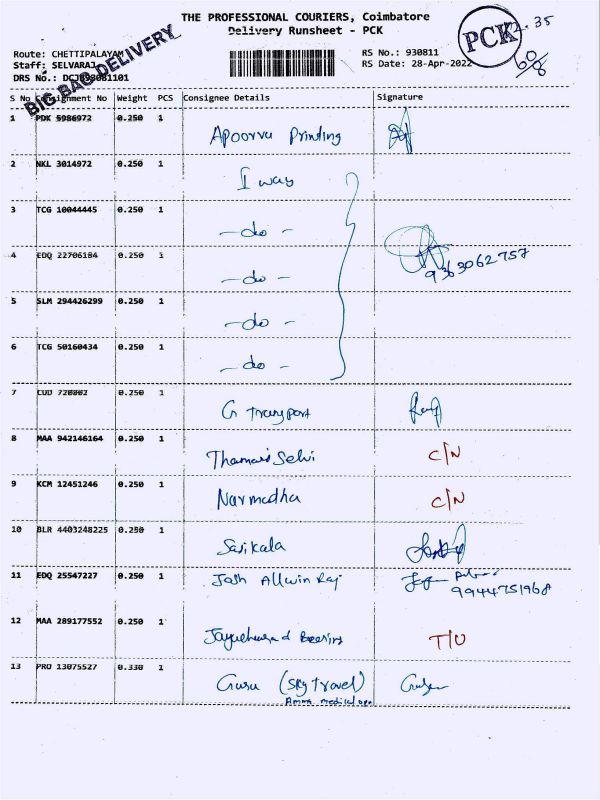 THE PROFESSIONAL COURIERS, Coimbatore
Delivery Runsheet - PCK
PCK
35
60/8
Route: CHETTIPALAYAM
Staff: SELVARAJ
DRS No.:
BIG BAG DELIVERY
RS No.: 930811
RS Date: 28-Apr-2022
S No Consignment No Weight PCS Consignee Details Signature
1 PDK 5986972 0.250 1 Apoorva Printing
2 NKL 3014972 0.250 1 I way
3 TCG 10044445 0.250 1 - do -
4 EDQ 22706184 0.250 1 - do -
9363062757
5 SLM 294426299 0.250 1 - do -
6 TCG 50160434 0.250 1 - do -
7 CUD 0.250 1 G Transport
8 MAA 942146164 0.250 1 Thamarai Selvi C/N
9 KCM 12451246 0.250 1 Narmadha C/N
10 BLR 4403248225 0.250 1 Sasikala
11 EDQ 25547227 0.250 1 Josh Allwin Raj
9944751968
12 MAA 289177552 0.250 1 Bearing T/U
13 PRO 13075527 0.330 1 Guru (Sky travel)
Amma medical opp